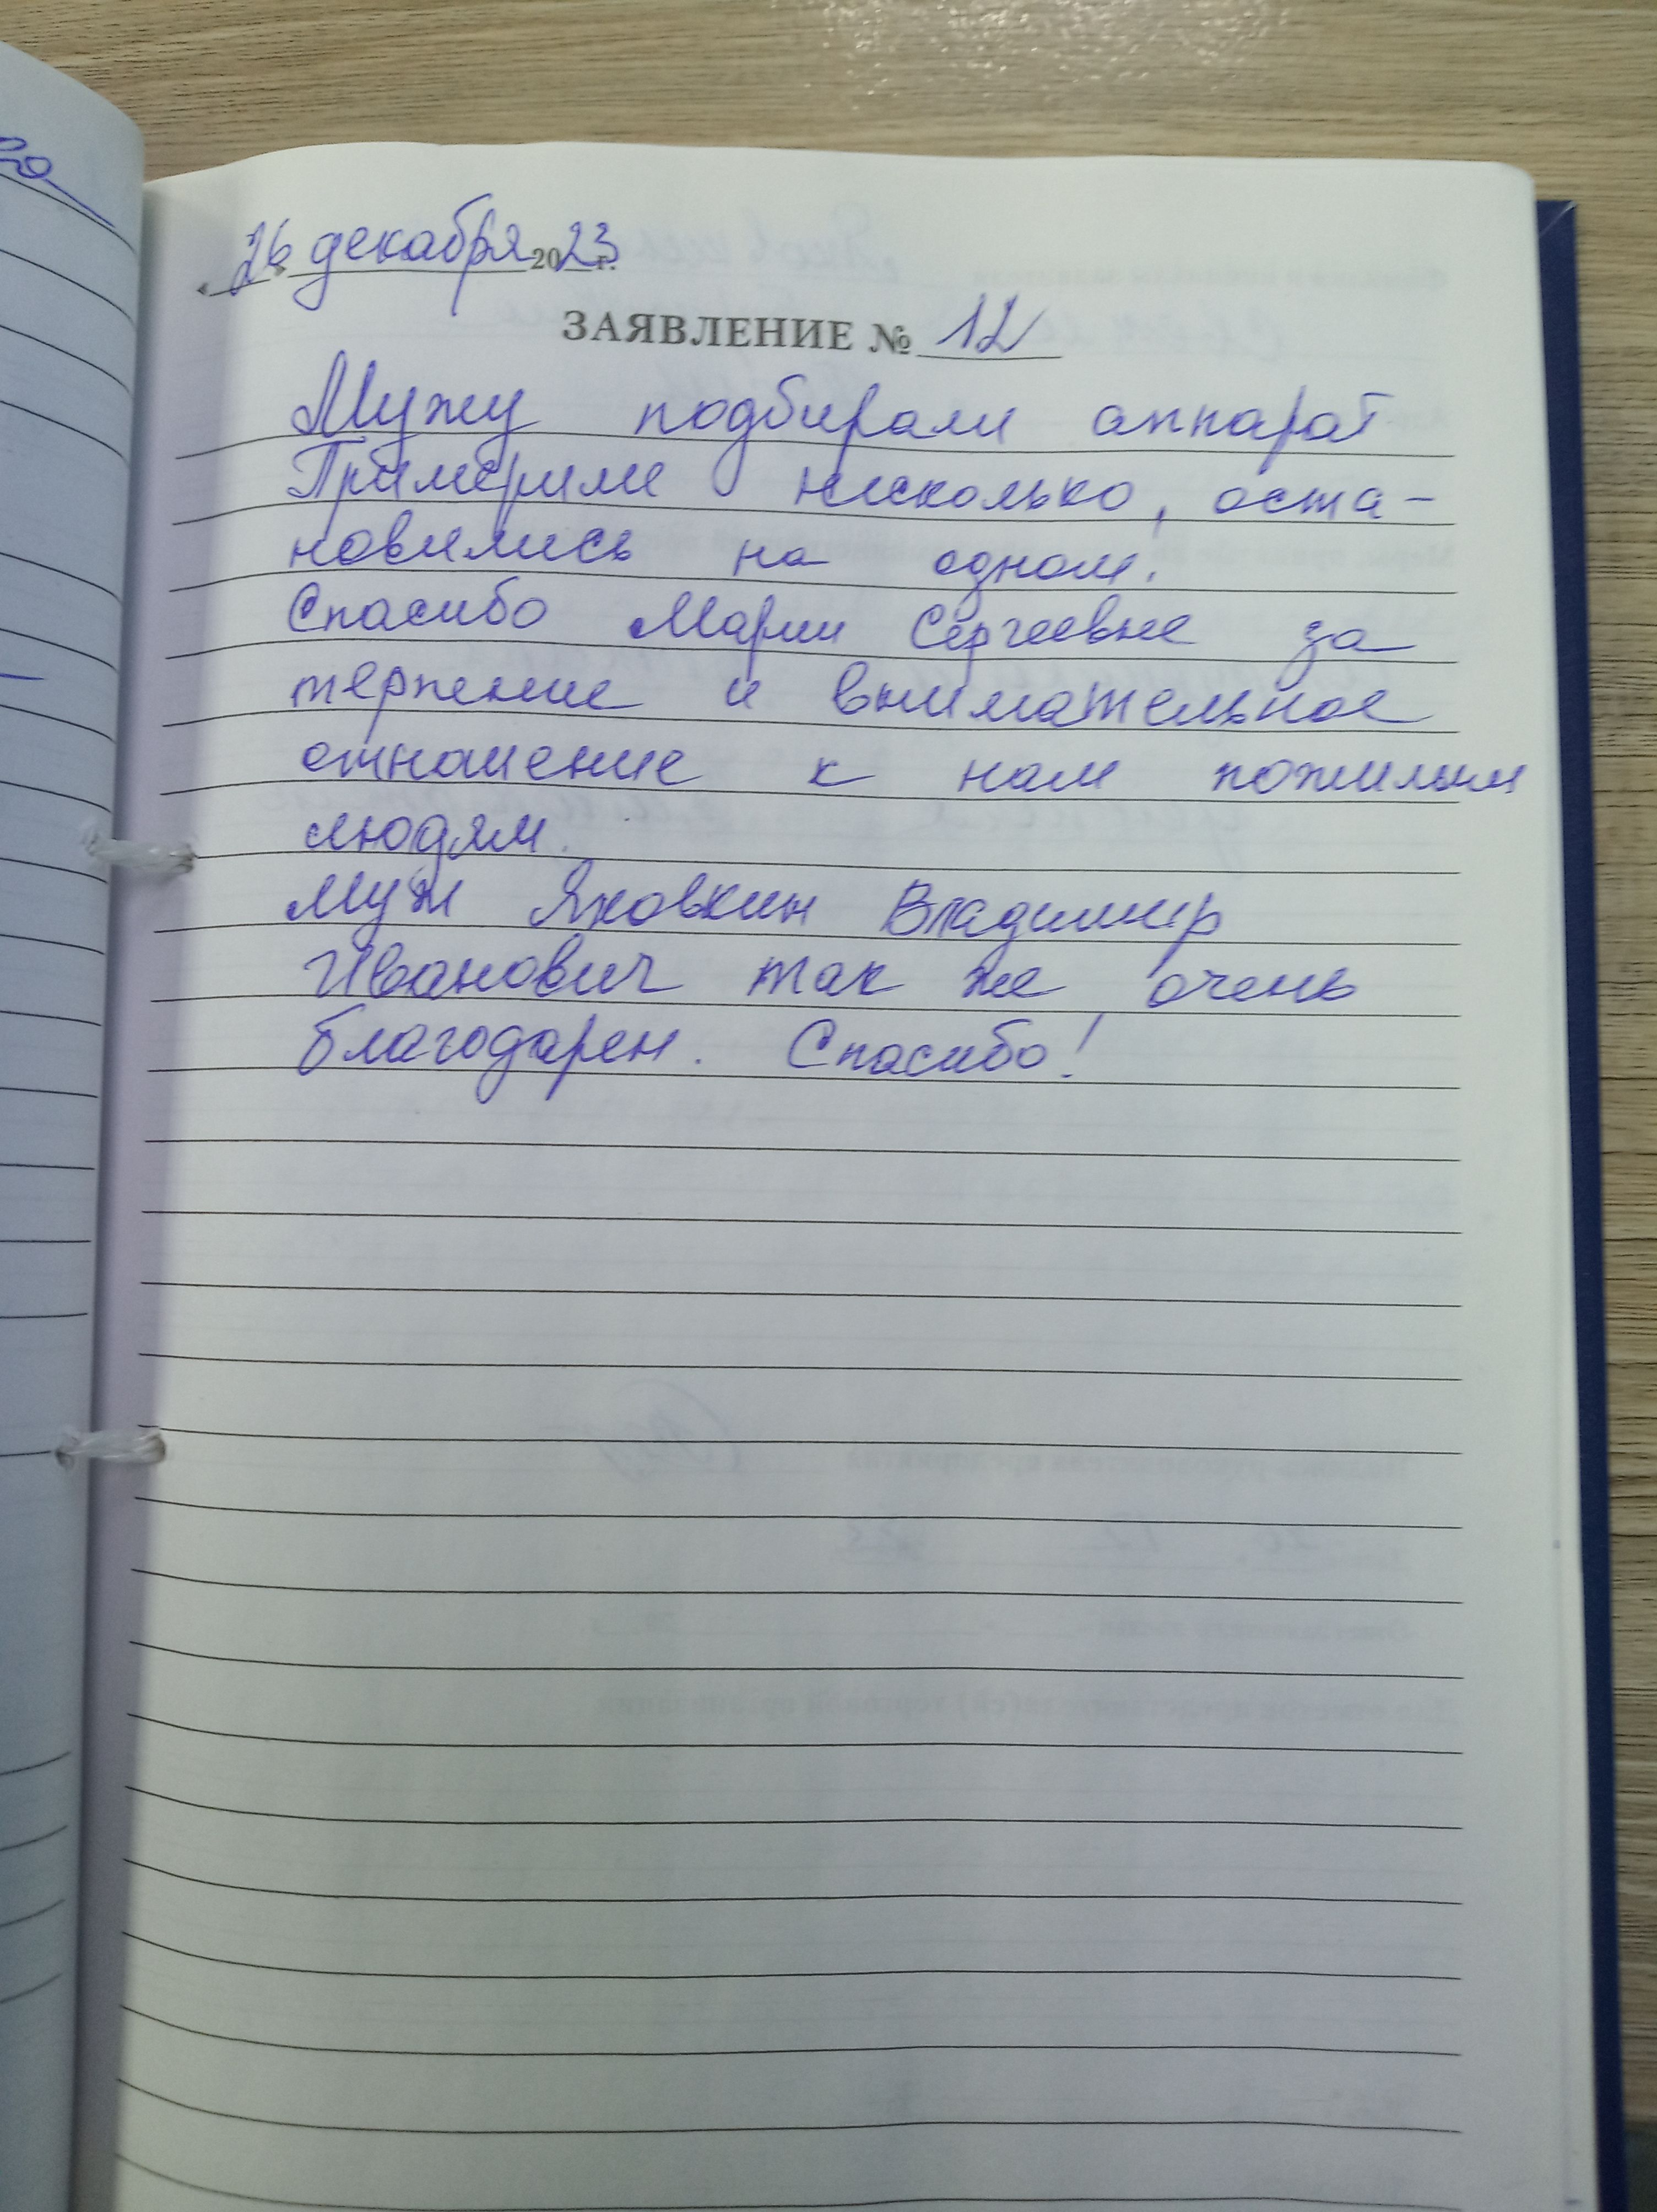 « 26 » декабря 2023 г.
ЗАЯВЛЕНИЕ № 12
Мужу подбирали аппарат
Примерили несколько, оста-
новились на одном.
Спасибо Марии Сергеевне за
терпение и внимательное
отношение к нам пожилым
людям.
Муж Яховкин Владимир
Иванович так же очень
благодарен. Спасибо!